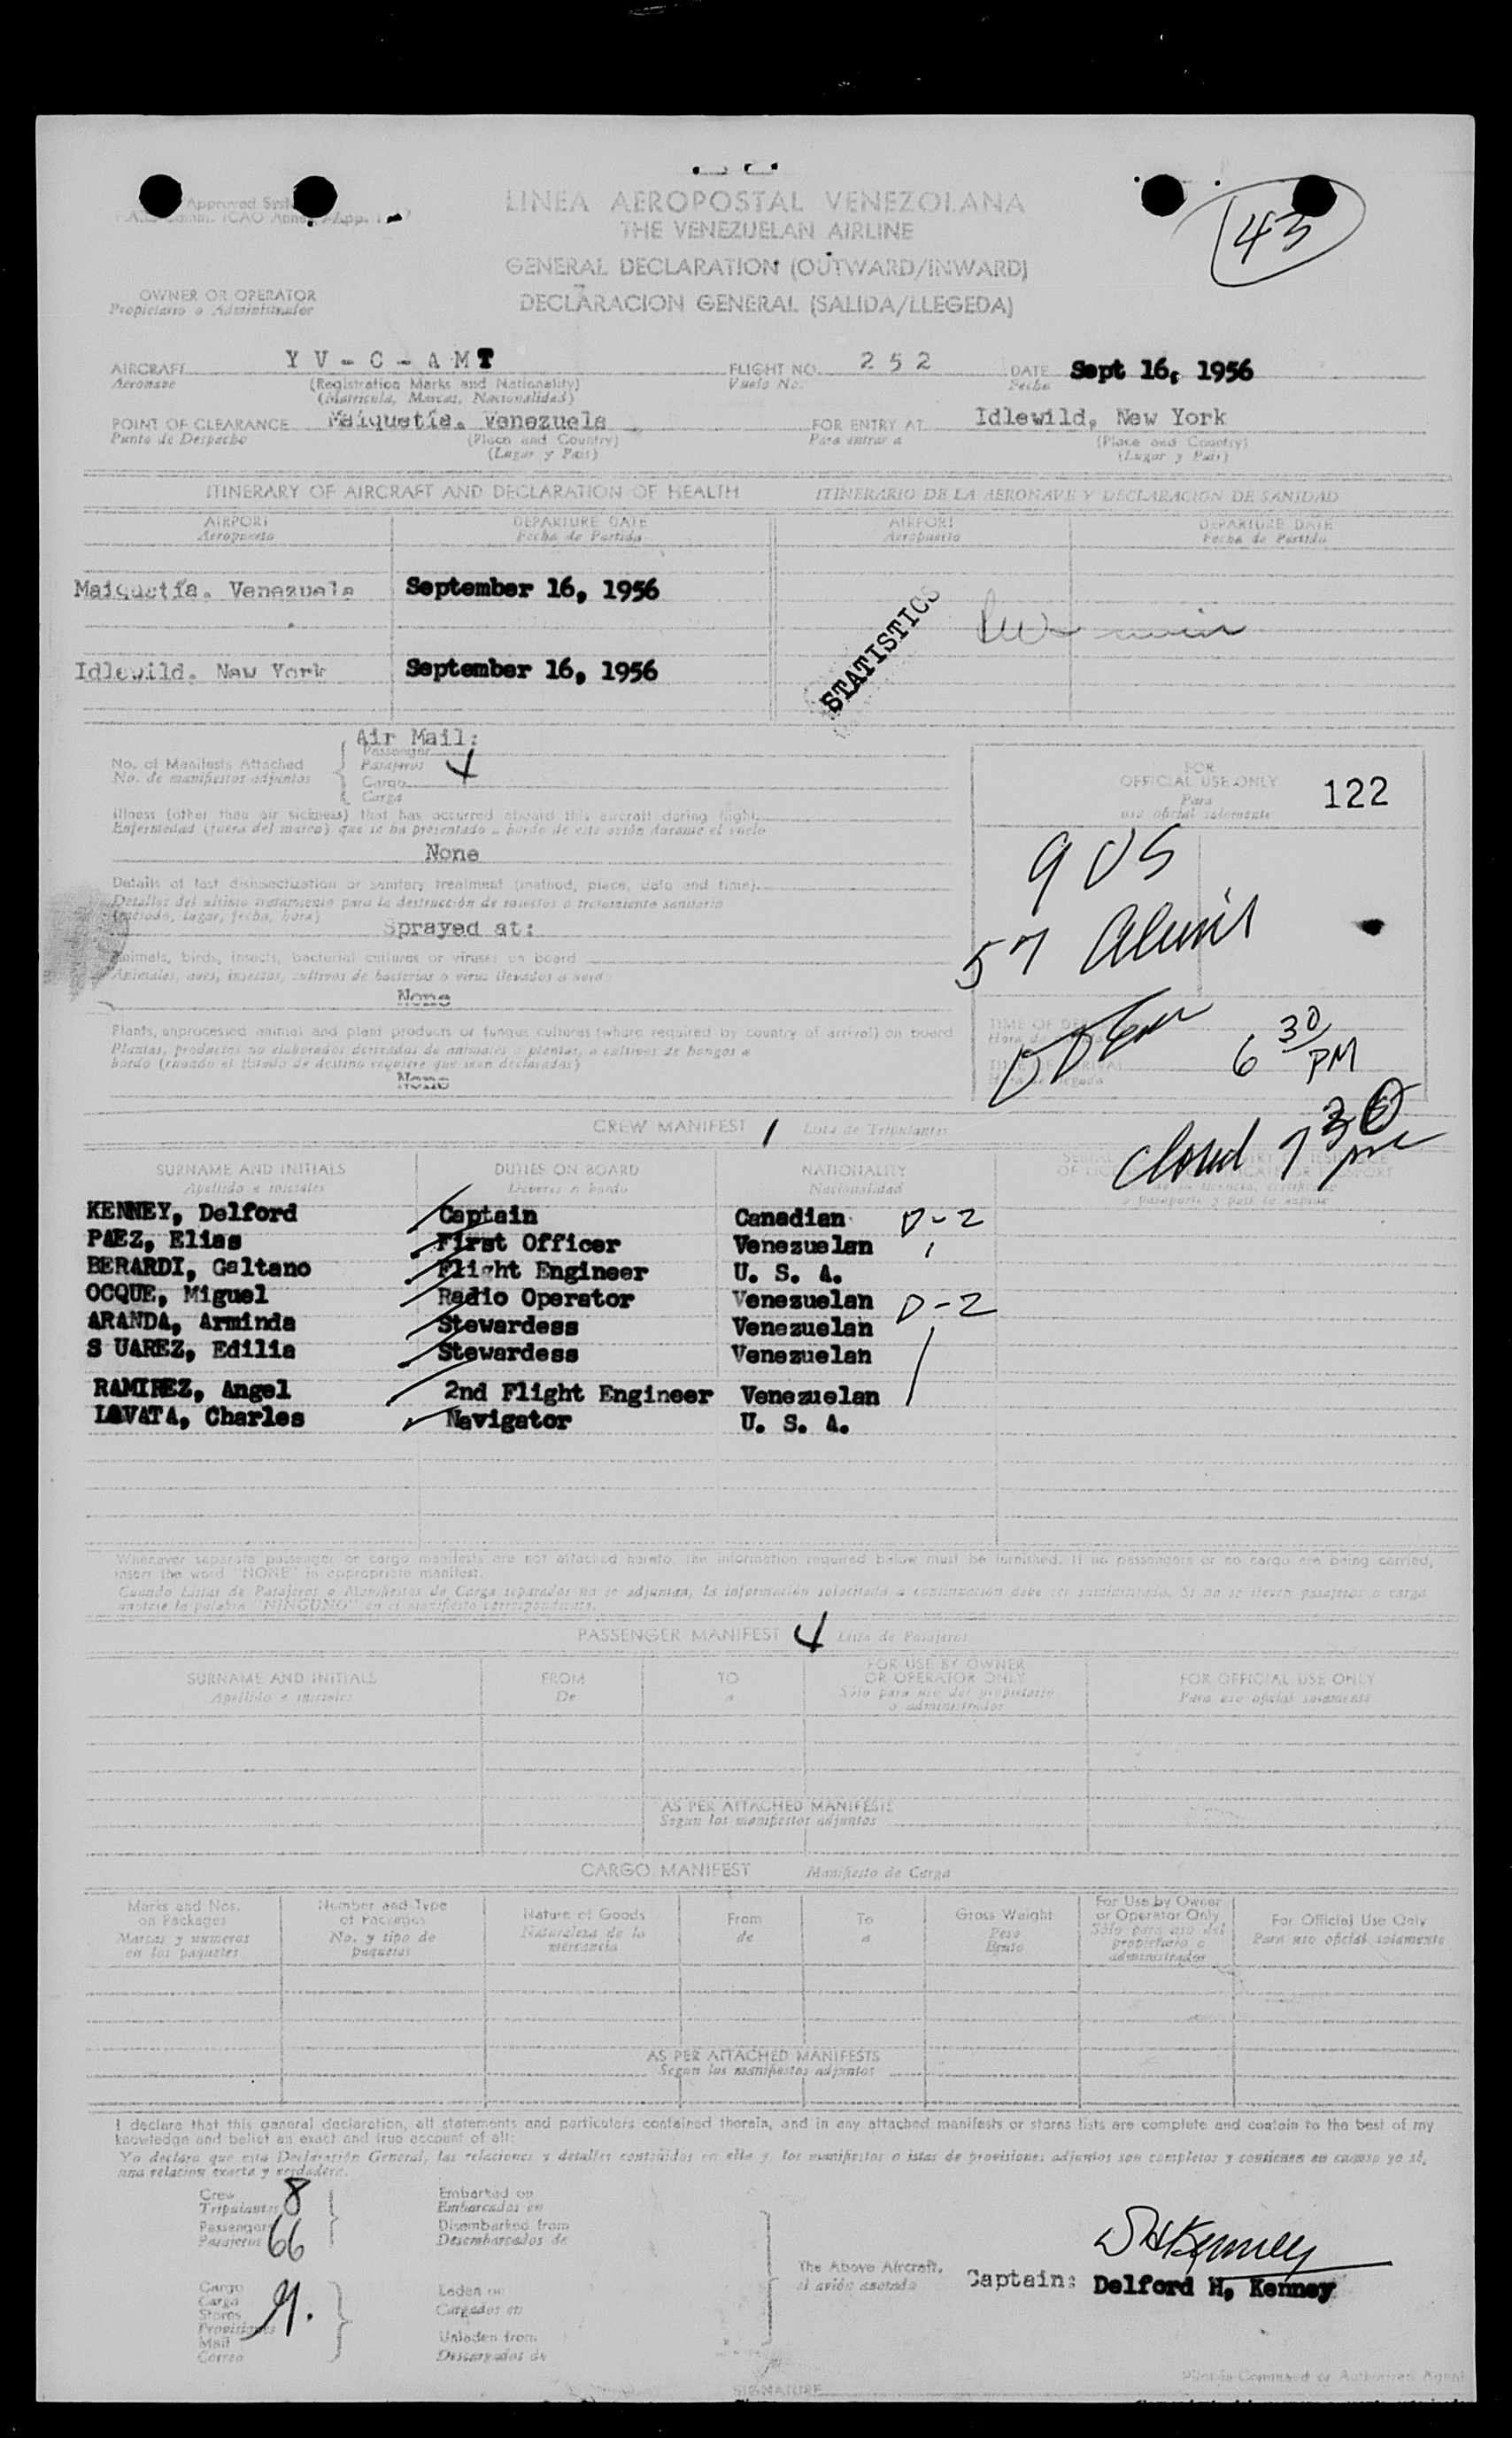 Approved
LINEA AEROPOSTAL VENEZOLANA
THE VENEZUELAN AIRLINE
GENERAL DECLARATION (OUTWARD/INWARD)
DECLARACION GENERAL (SALIDA/LLEGEDA)
43
OWNER OR OPERATOR
Propietario o Administrador
AIRCRAFT Y V - C - A M T FLIGHT NO. 2 5 2 DATE Sept 16, 1956
Aeronave (Registration Marks and Nationality) Vuelo No. Fecha
(Matricula, Marcas, Nacionalidad)
POINT OF CLEARANCE Maiquetía. Venezuela FOR ENTRY AT Idlewild, New York
Punto de Despacho (Place and Country) Para entrar a (Place and Country)
(Lugar y Pais) (Lugar y Pais)
ITINERARY OF AIRCRAFT AND DECLARATION OF HEALTH ITINERARIO DE LA AERONAVE Y DECLARACION DE SANIDAD
AIRPORT DEPARTURE DATE AIRPORT DEPARTURE DATE
Aeropuerto Fecha de Partida Aeropuerto Fecha de Partida
Maiquetía. Venezuela September 16, 1956
STATISTICS
Idlewild. New York September 16, 1956
Air Mail:
No. of Manifests Attached Passenger
No. de manifiestos adjuntos Pasajeros 4
Cargo
Carga
FOR
OFFICIAL USE ONLY 122
Para
uso oficial solamente
Illness (other than air sickness) that has occurred aboard this aircraft during flight.
Enfermedad (fuera del mareo) que se ha presentado a bordo de este avión durante el vuelo
None
9 US
Details of last disinsectization or sanitary treatment (method, place, date and time).
Detalles del ultimo tratamiento para la destrucción de insectos o tratamiento sanitario
(método, lugar, fecha, hora)
Sprayed at:
57 Aliens
Animals, birds, insects, bacterial cultures or viruses on board
Animales, aves, insectos, cultivos de bacterias o virus llevados a bordo
None
Plants, unprocessed animal and plant products or fungus cultures (where required by country of arrival) on board
Plantas, productos no elaborados derivados de animales o plantas, o cultivos de hongos a
bordo (cuando el Estado de destino requiere que sean declarados)
None
6 30 PM
closed 7 30 pm
CREW MANIFEST 1 Lista de Tripulantes
SURNAME AND INITIALS DUTIES ON BOARD NATIONALITY
Apellido e iniciales Deberes a bordo Nacionalidad
KENNEY, Delford Captain Canadian D-2
PAEZ, Elias First Officer Venezuelan
BERARDI, Galtano Flight Engineer U. S. A.
OCQUE, Miguel Radio Operator Venezuelan D-2
ARANDA, Arminda Stewardess Venezuelan
S UAREZ, Edilia Stewardess Venezuelan
RAMIREZ, Angel 2nd Flight Engineer Venezuelan
LOVATA, Charles Navigator U. S. A.
Whenever separate passenger or cargo manifests are not attached hereto, the information required below must be furnished. If no passengers or no cargo are being carried,
insert the word "NONE" in appropriate manifest.
Cuando Listas de Pasajeros o Manifiestos de Carga separados no se adjuntan, la información solicitada a continuación debe ser suministrada. Si no se llevan pasajeros o carga
anotese la palabra "NINGUNO" en el manifiesto correspondiente.
PASSENGER MANIFEST 4 Lista de Pasajeros
SURNAME AND INITIALS FROM TO FOR USE BY OWNER OR OPERATOR ONLY FOR OFFICIAL USE ONLY
Apellido e iniciales De a Sólo para uso del propietario o administrador Para uso oficial solamente
AS PER ATTACHED MANIFESTS
Segun los manifiestos adjuntos
CARGO MANIFEST Manifiesto de Carga
Marks and Nos. on Packages Number and Type of Packages Nature of Goods From To Gross Weight For Use by Owner or Operator Only For Official Use Only
Marcas y numeros en los paquetes No. y tipo de paquetes Naturaleza de la mercancia de a Peso Bruto Sólo para uso del propietario o administrador Para uso oficial solamente
AS PER ATTACHED MANIFESTS
Segun los manifiestos adjuntos
I declare that this general declaration, all statements and particulars contained therein, and in any attached manifests or stores lists are complete and contain to the best of my
knowledge and belief an exact and true account of all:
Yo declaro que esta Declaración General, las relaciones y detalles contenidos en ella y los manifiestos o listas de provisiones adjuntos son completos y contienen en cuanto yo sé,
una relacion exacta y verdadera.
Crew 8 Embarked on
Tripulantes Embarcados en
Passengers 66 Disembarked from
Pasajeros Desembarcados de
The Above Aircraft.
el avión anotado
DHKenney
Captain: Delford H, Kenney
Cargo Laden on
Carga Cargados en
Stores
Provisiones
Mail Unladen from
Correo Descargados de
Pilot in Command or Authorized Agent
SIGNATURE